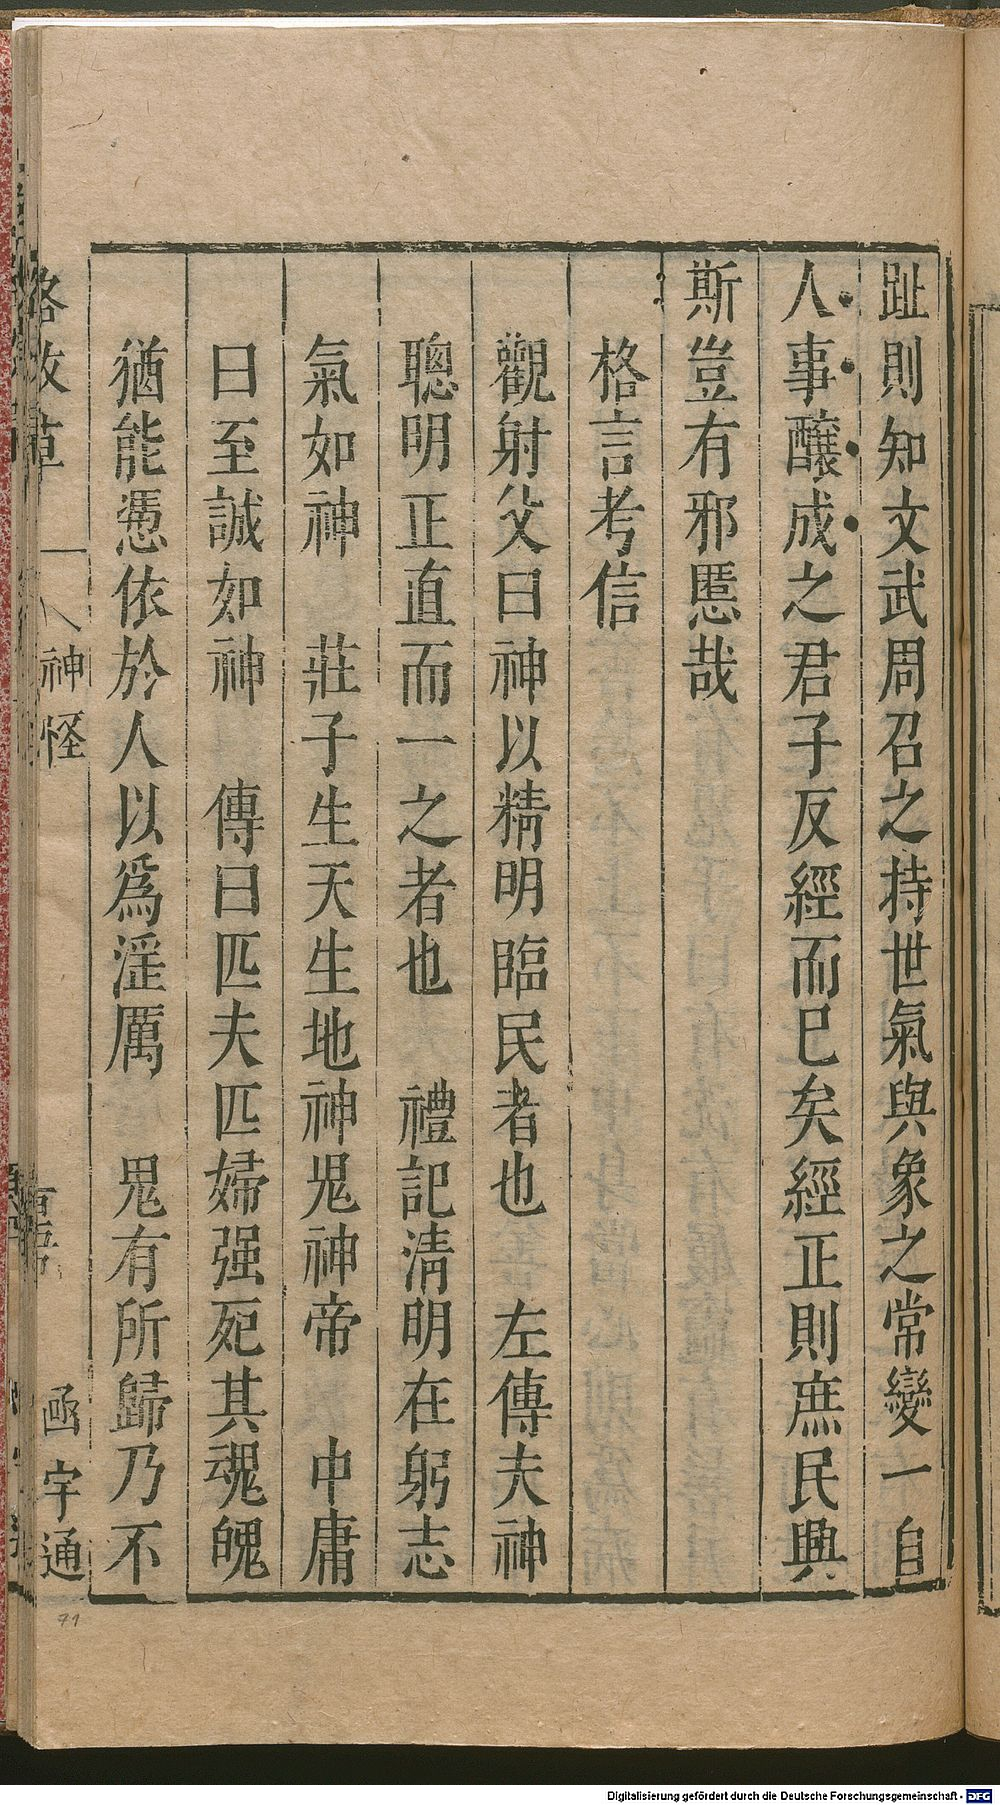 趾則知文武周召之持世氣與象之常變一自
人事釀成之君子反經而已矣經正則庶民興
斯豈有邪慝哉
格言考信
觀射父曰神以精明臨民者也　左傳夫神
聰明正直而一之者也　禮記淸明在躬志
氣如神　莊子生天生地神鬼神帝　中庸
曰至誠如神　傳曰匹夫匹婦强死其魂魄
猶能憑依於人以爲淫厲　鬼有所歸乃不
格致草　神怪　函宇通
71
Digitalisierung gefördert durch die Deutsche Forschungsgemeinschaft - DFG